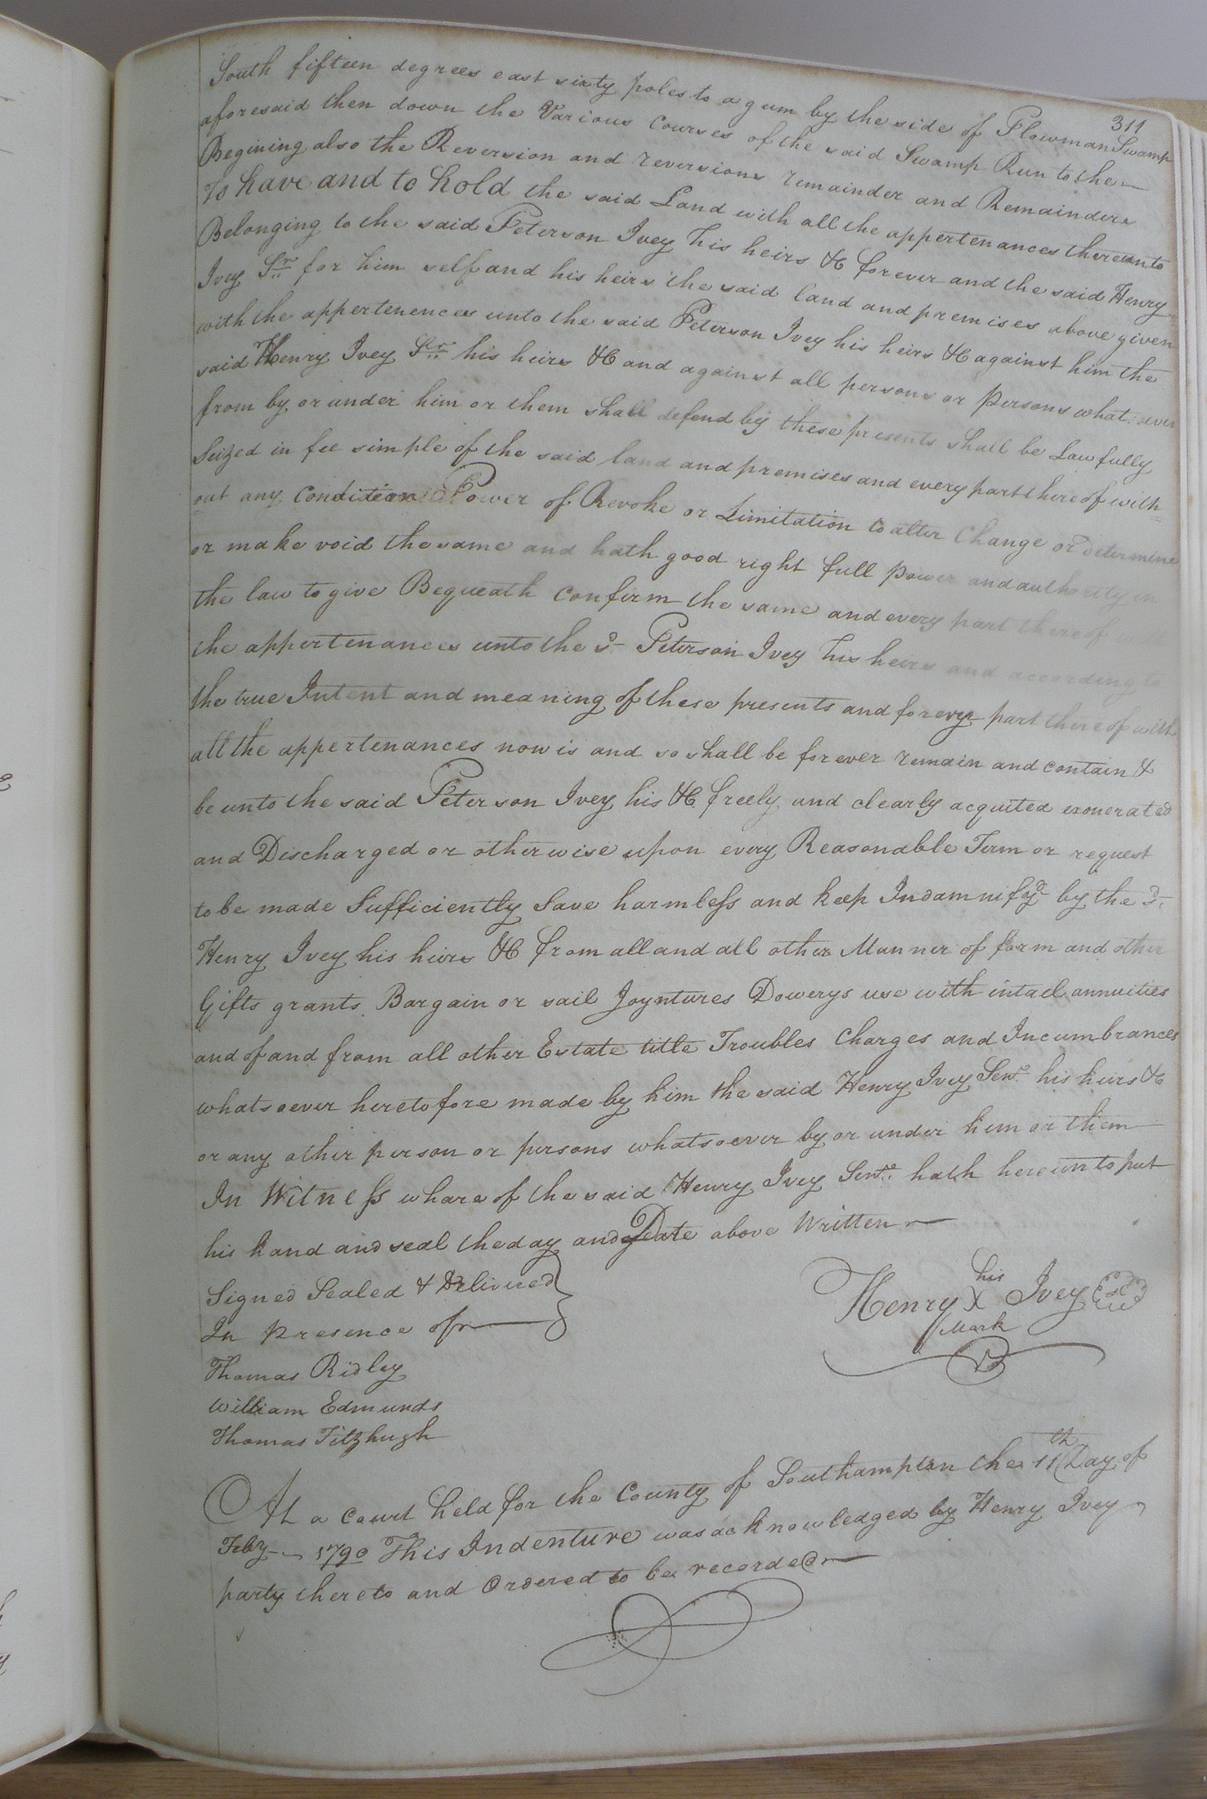 311
South fifteen degrees east sixty poles to a gum by the side of Plowman Swamp
aforesaid then down the Various Courses of the said Swamp Run to the
Begining also the Reversion and reversions remainder and Remainders
To have and to hold the said Land with all the appertenances thereunto
Belonging to the said Peterson Ivey his heirs &C forever and the said Henry
Ivey Sr. for him self and his heirs the said land and premises above given
with the appertenences unto the said Peterson Ivey his heirs &C against him the
said Henry Ivey Sr. his heirs &C and against all persons or Persons what ever
from by or under him or them shall defend by these presents shall be Lawfully
Seized in fee simple of the said land and premises and every part thereof with=
out any Condition Power of Revoke or Limitation to alter Change or Determine
or make void the same and hath good right full Power and authority in
the law to give Bequeath Confirm the same and every part thereof
the appertenances unto the sd. Peterson Ivey his heirs and according to
the true Intent and meaning of these presents and for every part thereof with
all the appertenances now is and so shall be for ever remain and contain &
be unto the said Peterson Ivey his &C freely and clearly acquited exonerated
and Discharged or otherwise upon every Reasonable Term or request
to be made Sufficiently Save harmless and keep Indamnifyd. by the sd.
Henry Ivey his heirs &C from all and all other Manner of form and other
Gifts grants Bargain or sail Joyntures Dowerys use with intail annuities
and of and from all other Estate title Troubles Charges and Incumbrances
whatsoever heretofore made by him the said Henry Ivey Senr. his heirs &C
or any other person or persons whatsoever by or under him or them
In Witness whare of the said Henry Ivey Senr. hath hereunto put
his hand and seal the day and Date above Written
Signed Sealed & Delivered
In Presence of
his
Henry X Ivey
Mark
Thomas Ridley
William Edmunds
Thomas Fitzhugh
At a Court held for the County of Southampton the 11th Day of
Feby 1790 This Indenture was acknowledged by Henry Ivey
party thereto and Ordered to be recorded